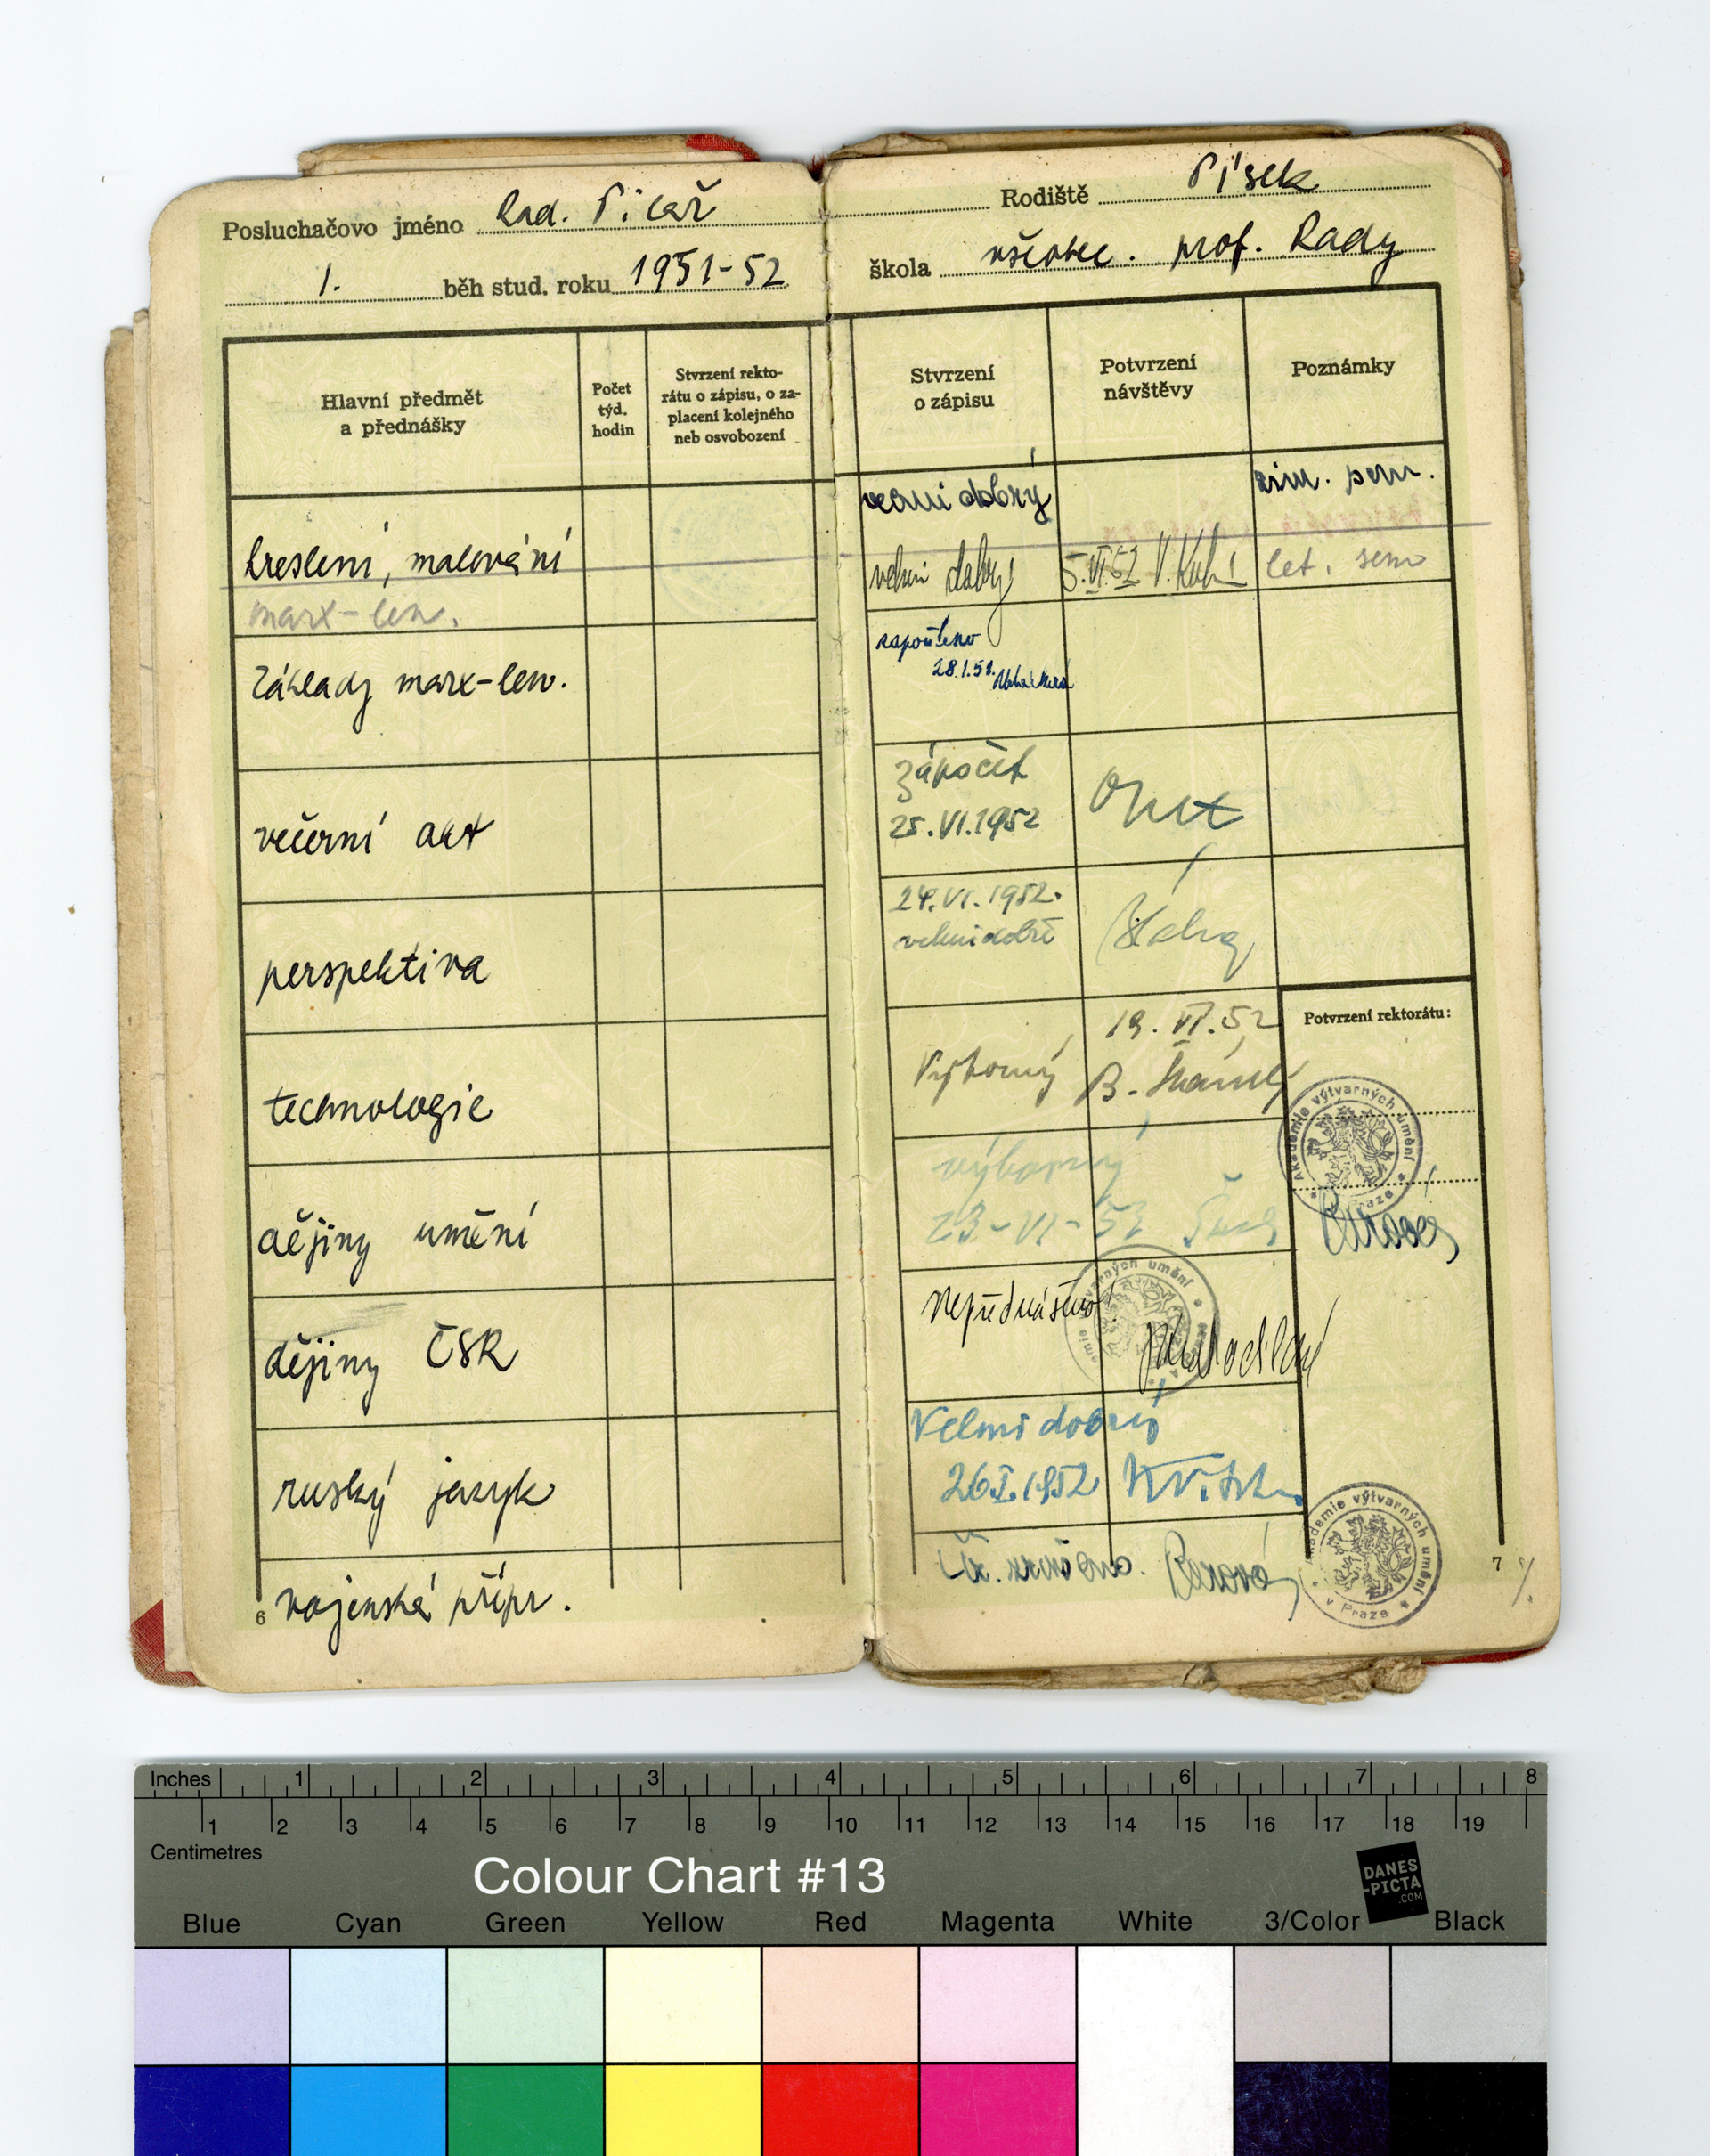 Posluchačovo jméno Rad. Picař
Rodiště Písek
1. běh stud. roku 1951-52
škola všeobec. prof. Rady
Hlavní předmět
a přednášky
Počet
týd.
hodin
Stvrzení rekto-
rátu o zápisu, o za-
placení kolejného
neb osvobození
Stvrzení
o zápisu
Potvrzení
návštěvy
Poznámky
kreslení, malování
marx-len.
velmi dobrý
zim. sem.
velmi dobrý 5.VI.52 let. sem
Základy marx-len.
započteno
28.1.51.
večerní akt
zápočet
25.VI.1952
perspektiva
24.VI.1952.
velmi dobře
technologie
Výborný
19.VI.52
B.
Potvrzení rektorátu:
Akademie výtvarných umění
v Praze
dějiny umění
výborný
23-VI-52
dějiny ČSR
Nepřednášeno!
ruský jazyk
Velmi dobrý
26.I.1952
6 vojenská přípr.
Akademie výtvarných umění
v Praze
7
Inches 1 2 3 4 5 6 7 8
1 2 3 4 5 6 7 8 9 10 11 12 13 14 15 16 17 18 19
Centimetres
Colour Chart #13
DANES
-PICTA
.COM
Blue Cyan Green Yellow Red Magenta White 3/Color Black